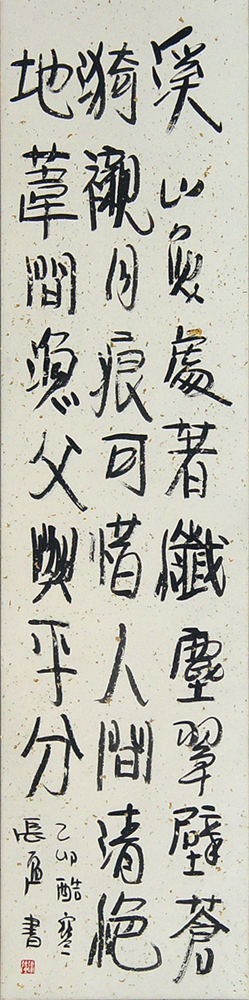 溪山處著纖塵翠壁蒼
猗襯月痕可惜人間清絕
地葦間漁父與平分
乙卯酷寒
長書